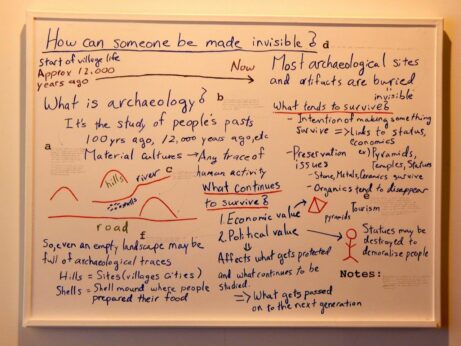 How can someone be made invisible?
d
Start of village life
Approx 12,000
years ago
Now
Most archaeological sites
and artifacts are buried
invisible
What is archaeology?
b
It's the study of people's pasts
100 yrs ago, 12,000 years ago, etc
a
Material Cultures → Any trace of
human activity
hills
river
c
road
f
So, even an empty landscape may be
full of archaeological traces
Hills = Sites (villages cities)
Shells = Shell mound where people
prepared their food
What continues
to survive?
1. Economic value
2. Political value
Affects what gets protected
and what continues to be
studied.
=> What gets passed
on to the next generation
What tends to survive?
- Intention of making something
survive => Links to status,
economics
- Preservation ex) Pyramids,
issues Temples, Statues
- Stone, Metals, Ceramics survive
- Organics tend to disappear
e
Tourism
pyramids
Statues may be
destroyed to
demoralize people
Notes: